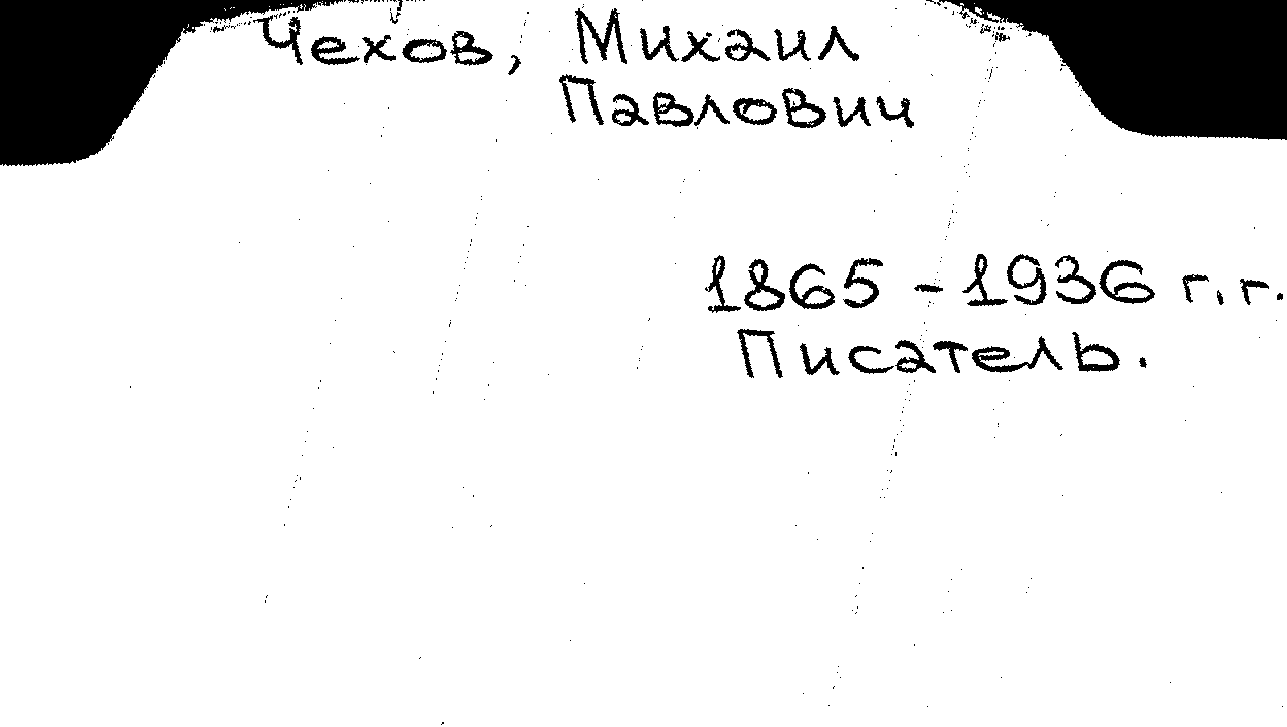 Чехов, Михаил
Павлович
1865 - 1936 г.г.
Писатель.